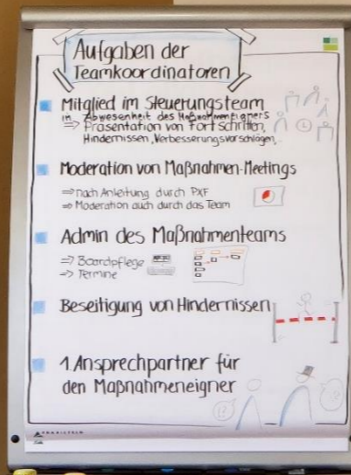 Aufgaben der
Teamkoordinatoren
Mitglied im Steuerungsteam
in Abwesenheit des Maßnahmeneigners
⇒ Präsentation von Fortschritten,
Hindernissen, Verbesserungsvorschlägen,...
Moderation von Maßnahmen-Meetings
⇒ nach Anleitung durch PXF
⇒ Moderation auch durch das Team
Admin des Maßnahmenteams
⇒ Boardpflege
⇒ Termine
Beseitigung von Hindernissen
1. Ansprechpartner für
den Maßnahmeneigner
PRAXISFELD